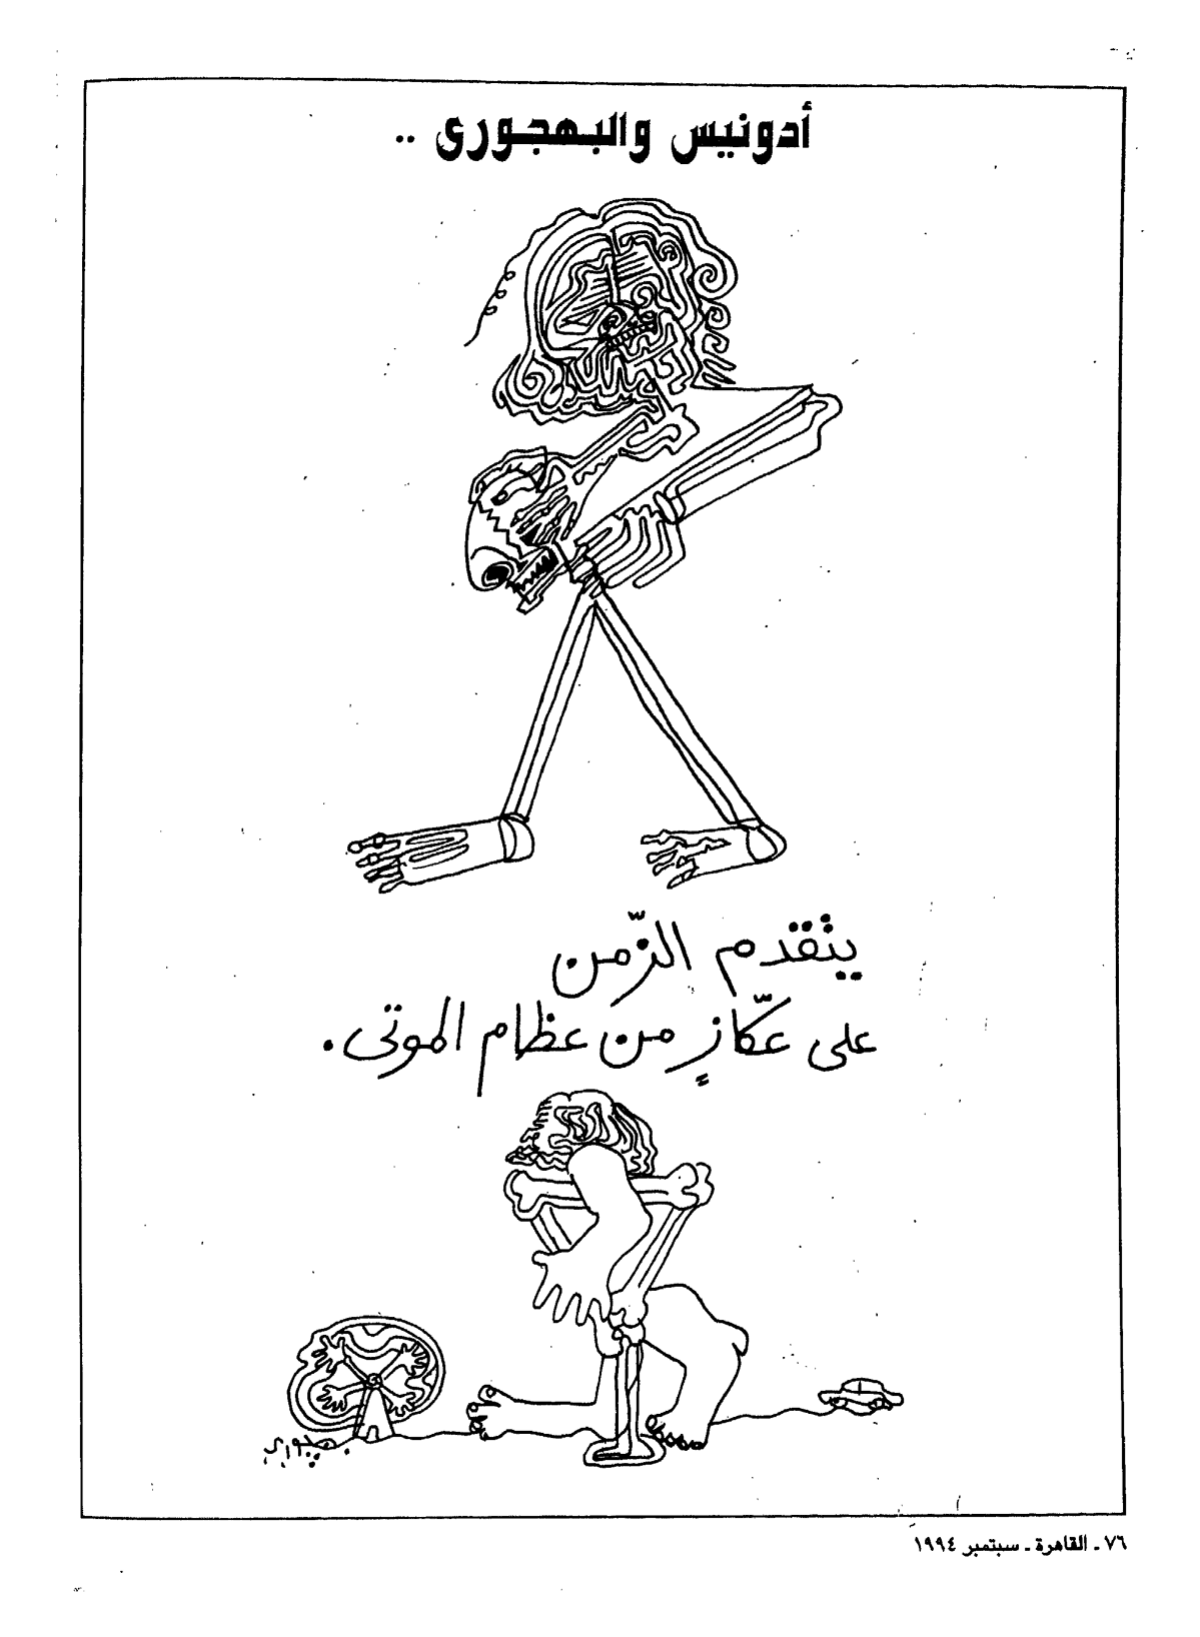 أدونيس والبهجورى ..
يتقدم الزّمن
على عكّازٍ من عظام الموتى.
بهجوري
٧٦ ـ القاهرة ـ سبتمبر ١٩٩٤